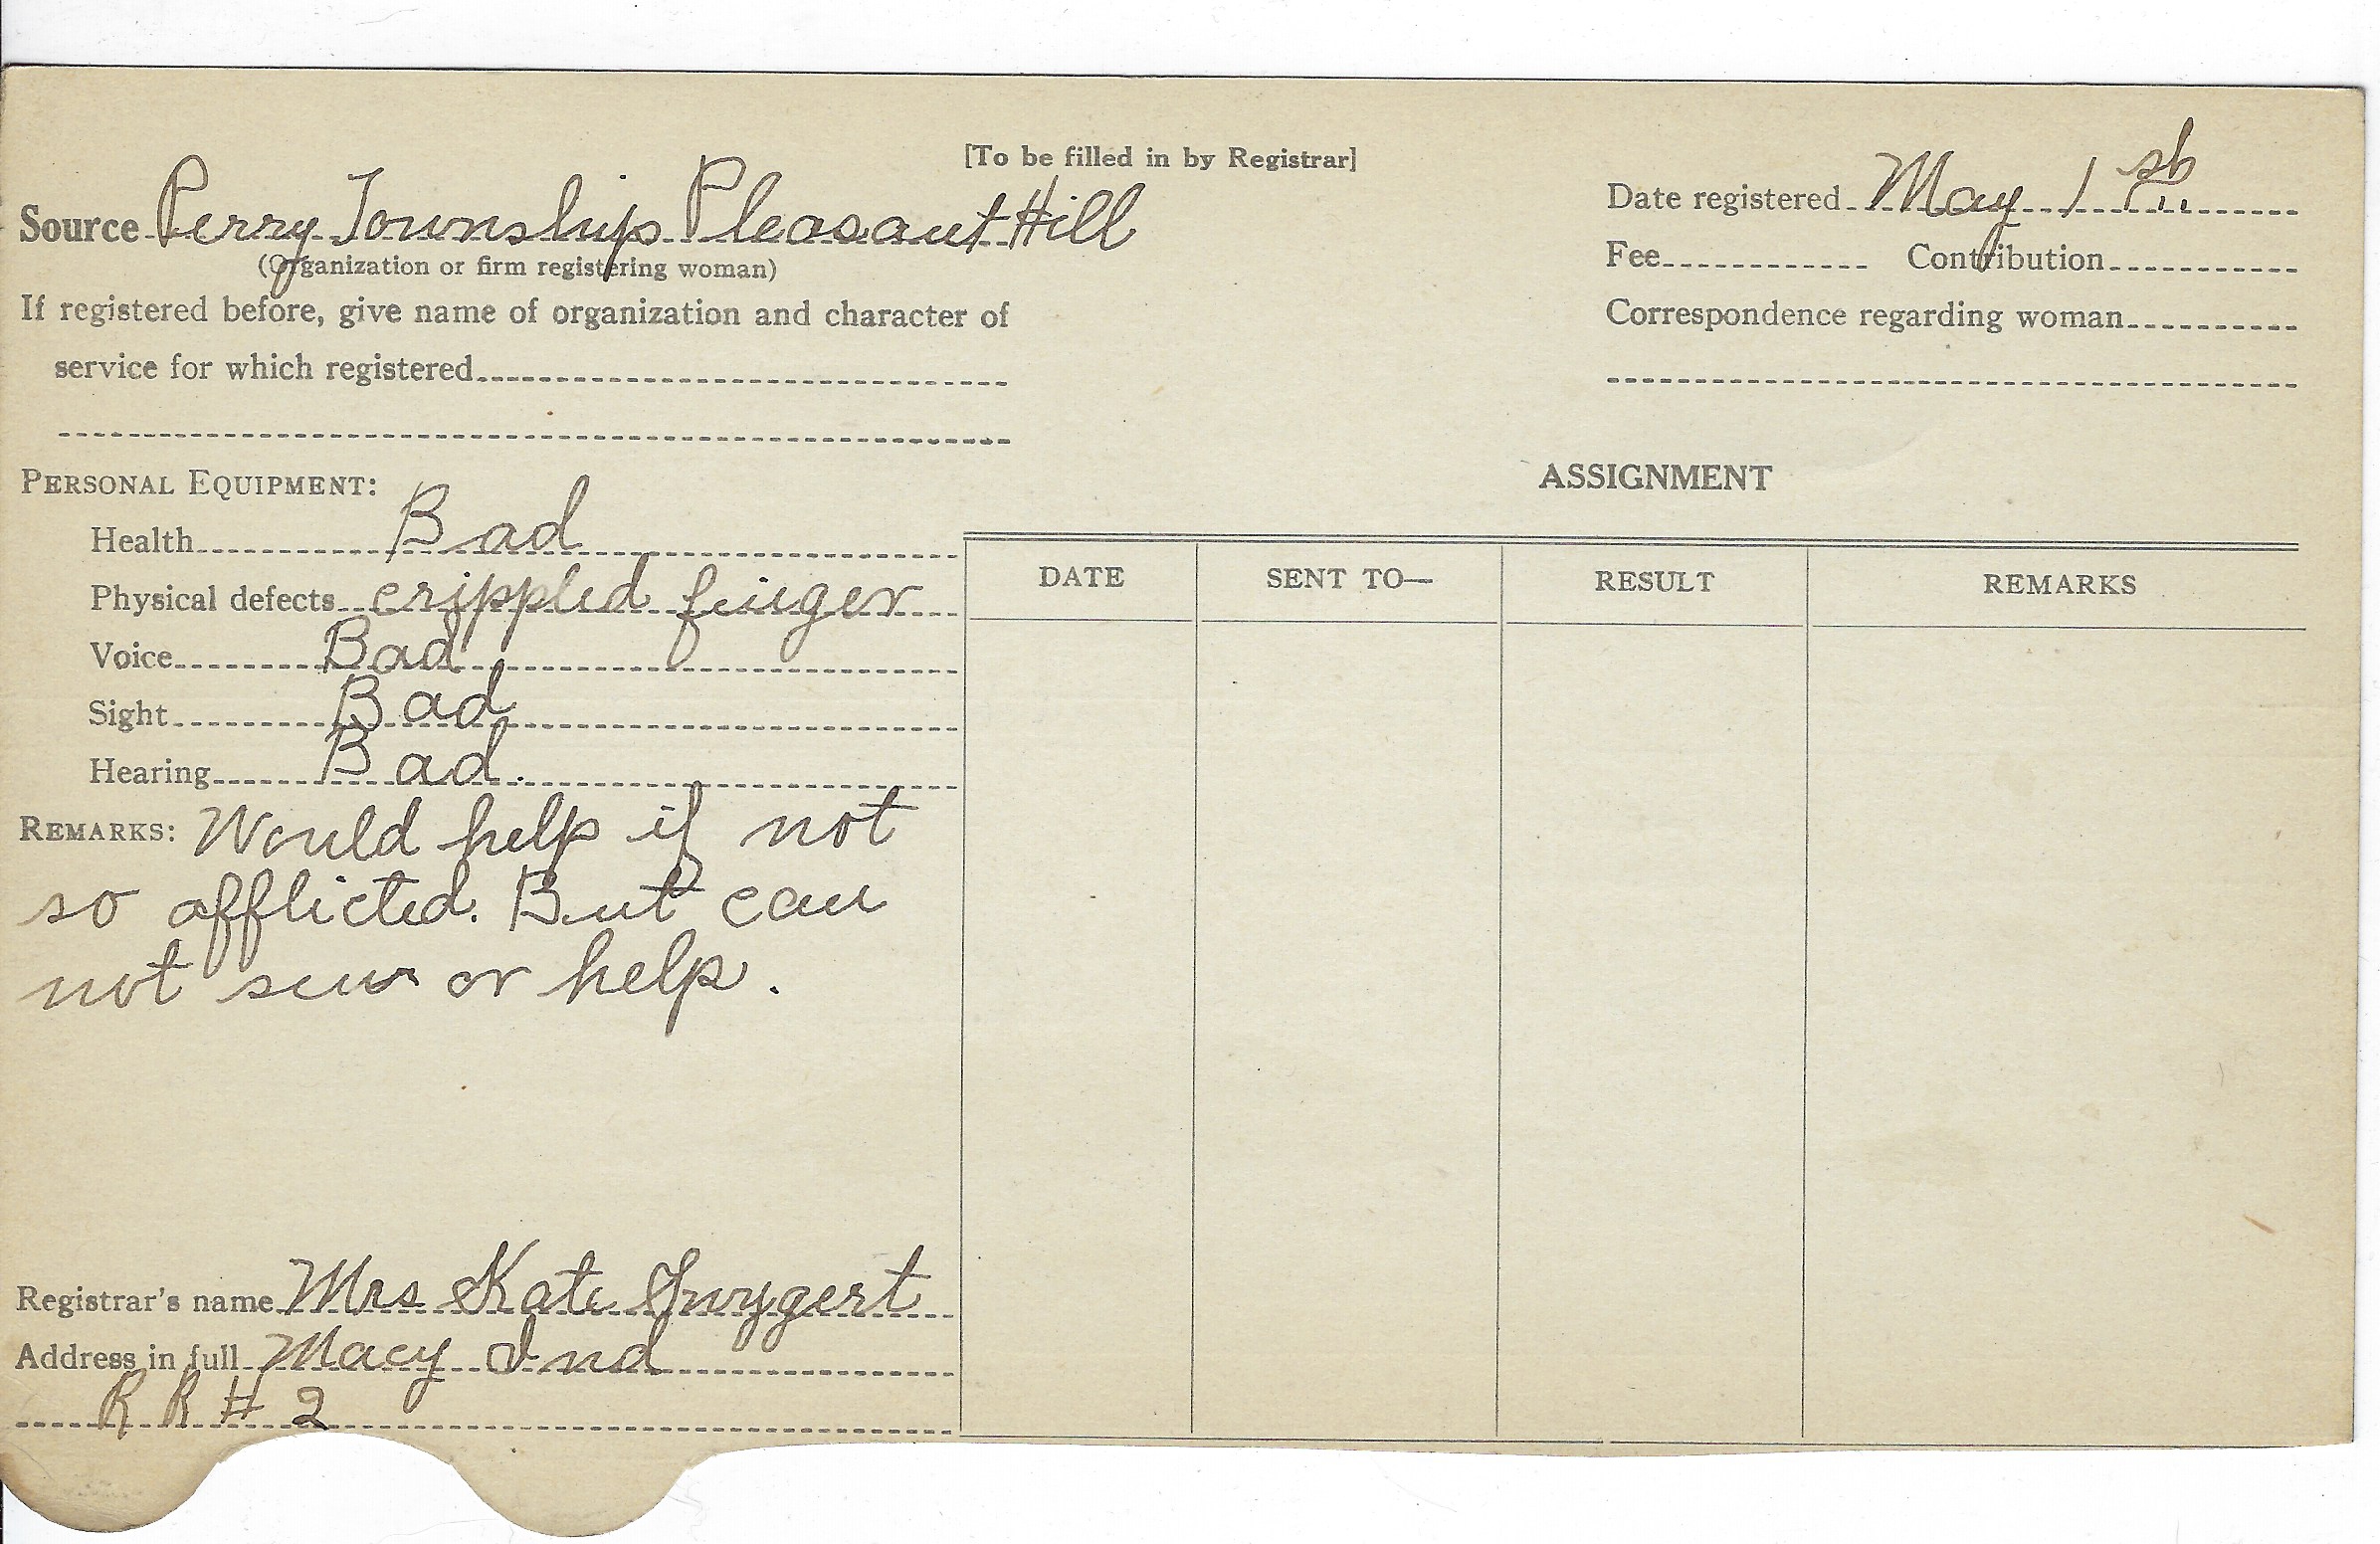 [To be filled in by Registrar]
Source Perry Township Pleasant Hill
(Organization or firm registering woman)
If registered before, give name of organization and character of
service for which registered
Date registered May 1st
Fee Contribution
Correspondence regarding woman
PERSONAL EQUIPMENT:
Health Bad
Physical defects crippled finger
Voice Bad
Sight Bad
Hearing Bad.
REMARKS: Would help if not
so afflicted. But can
not sew or help.
Registrar's name Mrs Kate Swygert
Address in full Macy Ind
R R # 2
ASSIGNMENT
DATE SENT TO— RESULT REMARKS